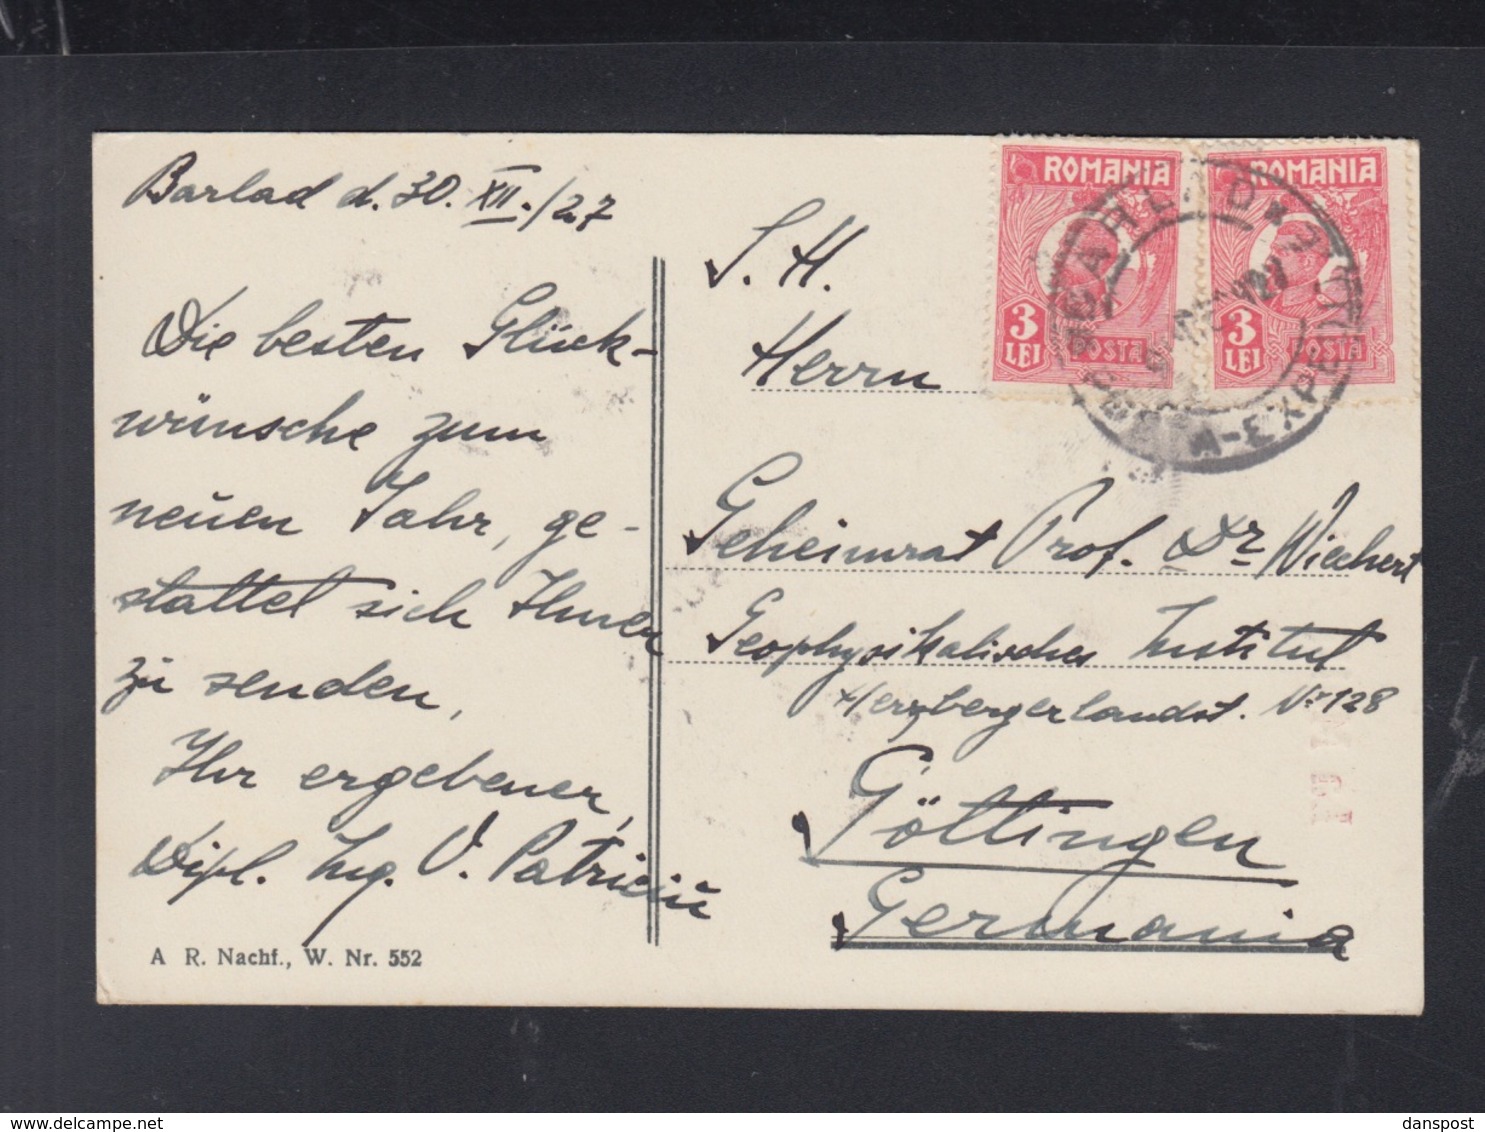 Barlad d. 30. XII./27
Die besten Glück-
wünsche zum
neuen Jahr, ge-
stattet sich Ihnen
zu senden,
Ihr ergebener,
Dipl. Ing. V. Patriciu
A R. Nachf., W. Nr. 552
ROMANIA
3 LEI
POSTA
ROMANIA
3 LEI
POSTA
BARLAD
S. H.
Herrn
Geheimrat Prof. Dr Wiechert
Geophysikalisches Institut
Herzbergerlandst. Nr 128
Göttingen
Germania
delcampe.net
danspost